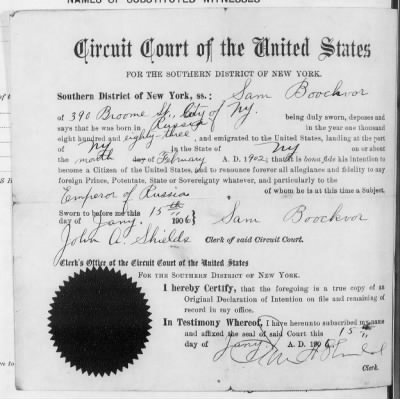 NAMES OF SUBSTITUTED WITNESSES
Circuit Court of the United States
FOR THE SOUTHERN DISTRICT OF NEW YORK.
Southern District of New York, ss.: Sam Boochvor
of 390 Broome St., City of NY. being duly sworn, deposes and
says that he was born in Russia in the year one thousand
eight hundred and eighty-three, and emigrated to the United States, landing at the port
of NY in the State of NY on or about
the month day of February A. D. 1902; that it is bona fide his intention to
become a Citizen of the United States, and to renounce forever all allegiance and fidelity to any
foreign Prince, Potentate, State or Sovereignty whatever, and particularly to the
Emperor of Russia of whom he is at this time a Subject.
Sworn to before me this 15th
day of Jany. 1906 Sam Boochvor
John A. Shields Clerk of said Circuit Court.
Clerk's Office of the Circuit Court of the United States
FOR THE SOUTHERN DISTRICT OF NEW YORK.
I hereby Certify, that the foregoing is a true copy of an
Original Declaration of Intention on file and remaining of
record in my office.
In Testimony Whereof, I have hereunto subscribed my name
and affixed the seal of said Court this 15
day of Jany A. D. 190